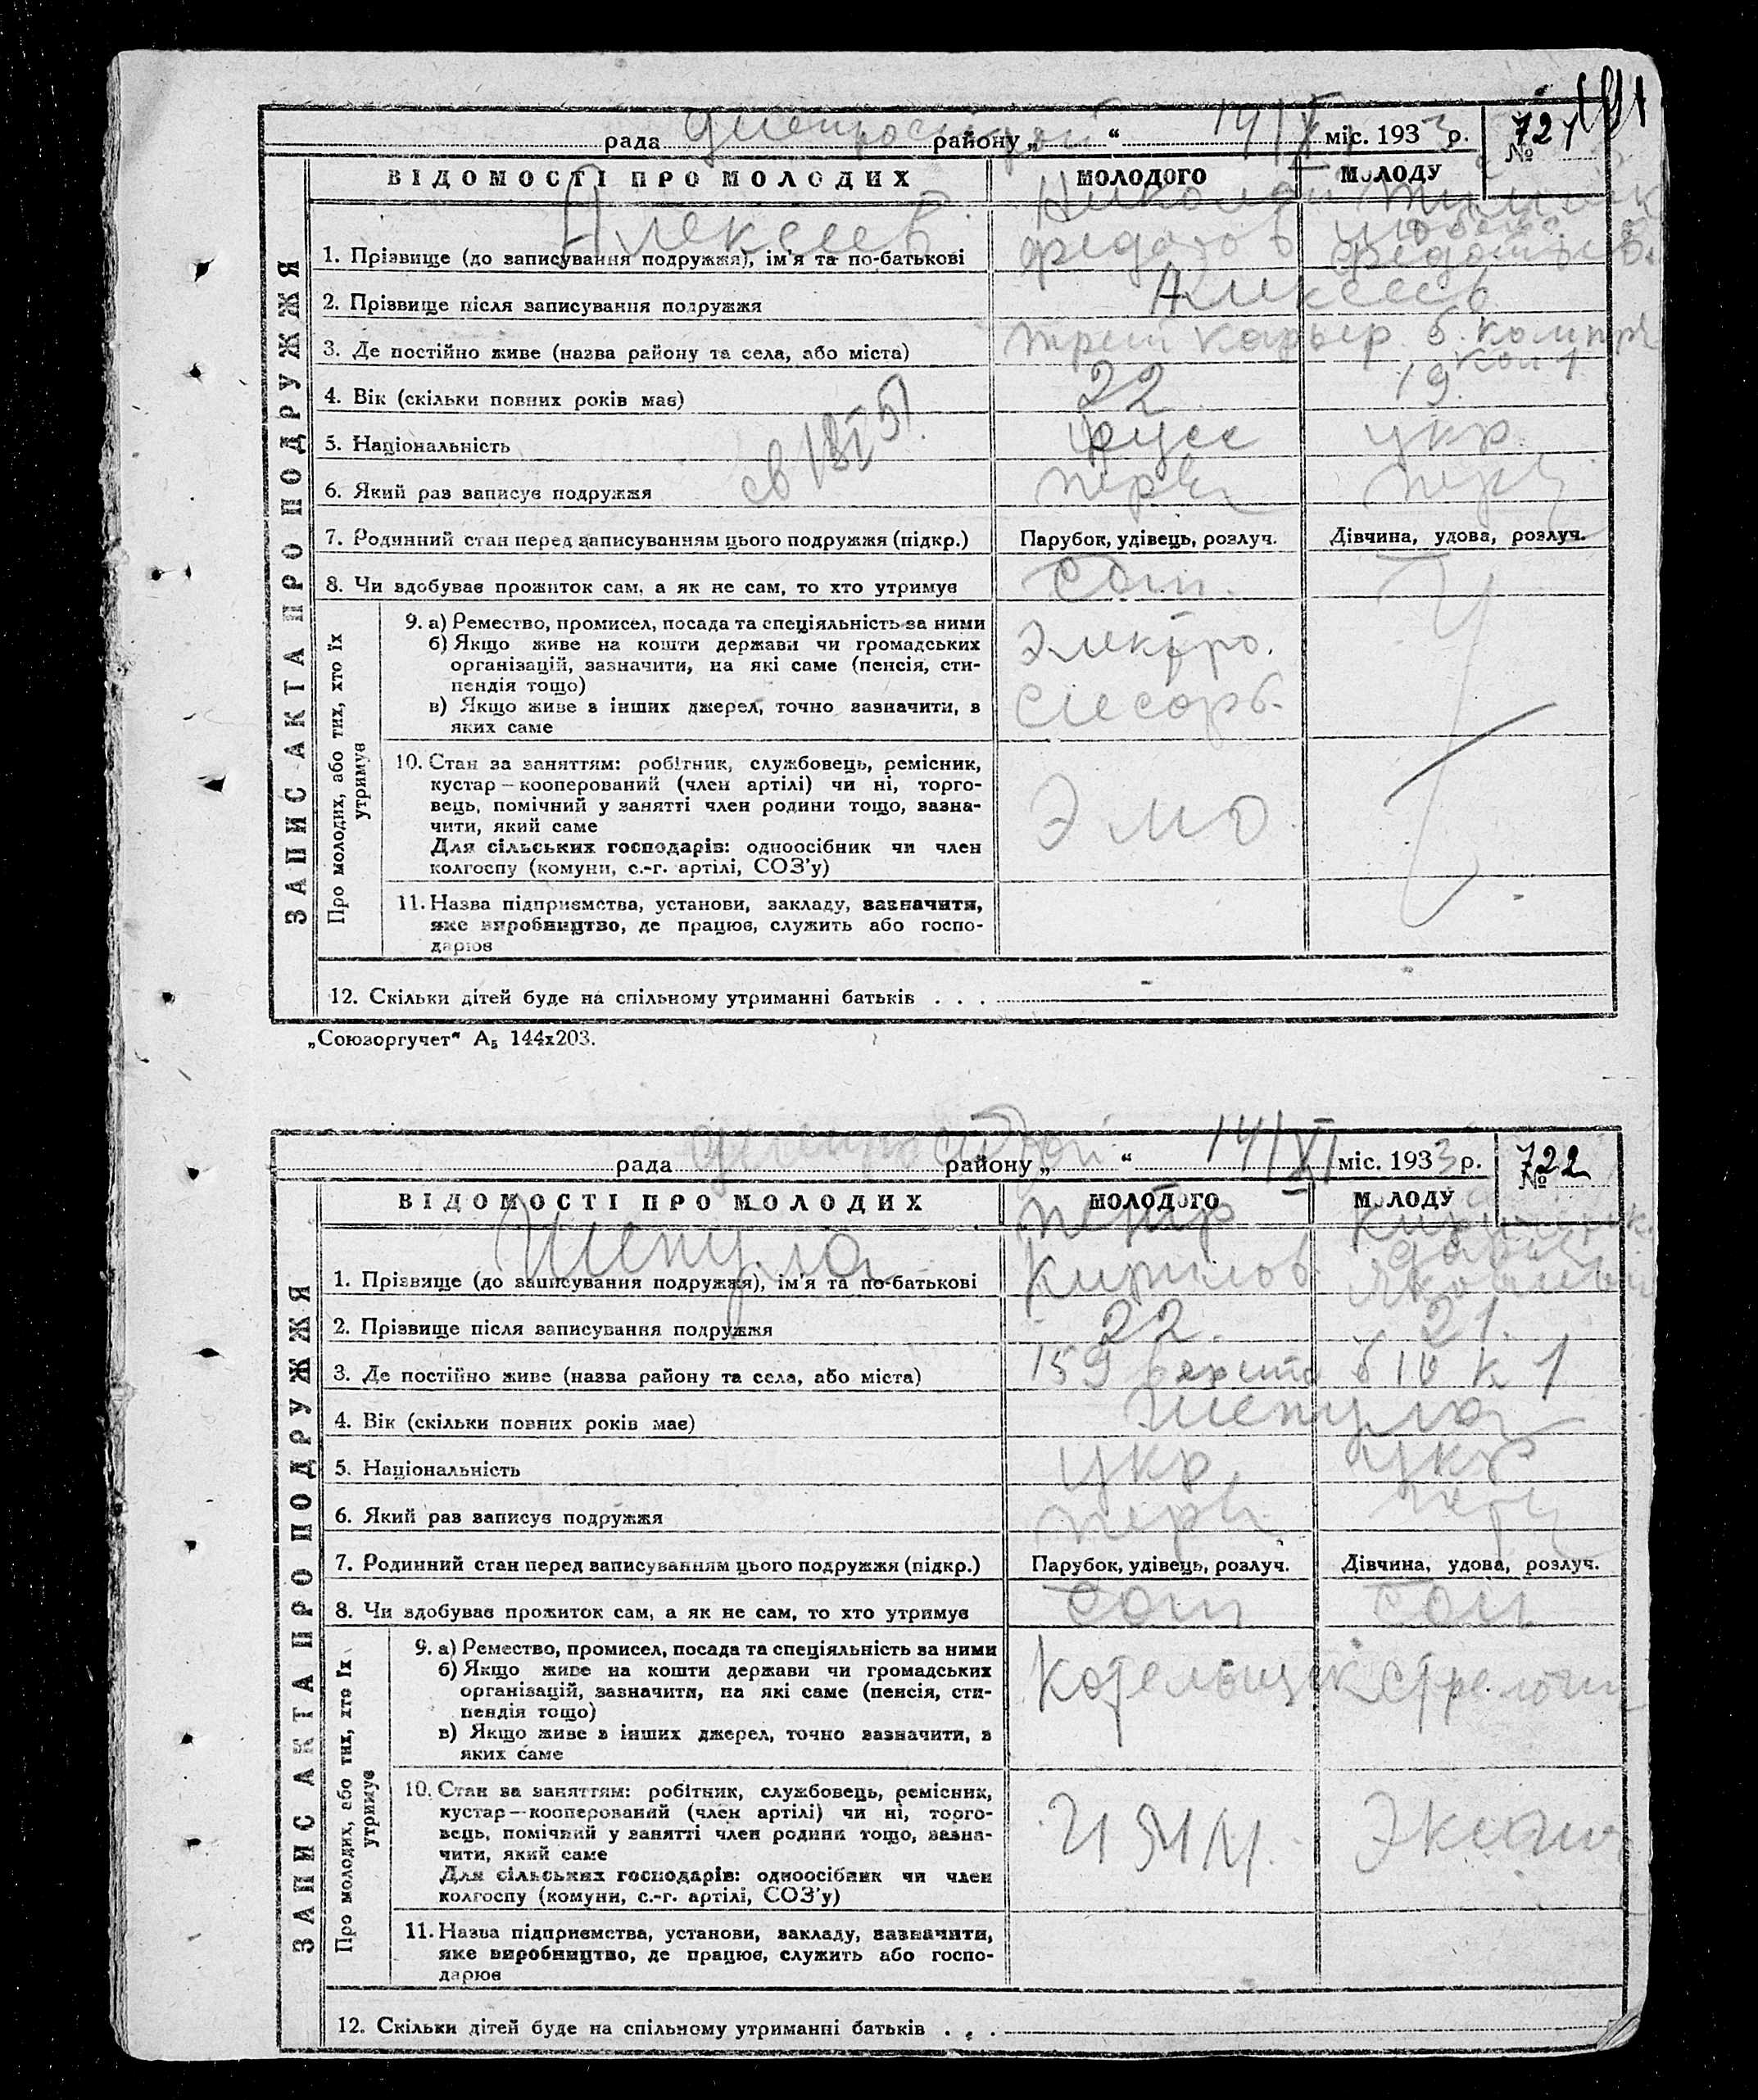 рада Днепрострой району „ “ 14/XI міс. 1933 р. № 721
ВІДОМОСТІ ПРО МОЛОДИХ МОЛОДОГО МОЛОДУ
ЗАПИС АКТА ПРО ПОДРУЖЖЯ
Алексеев Николай
1. Прізвище (до записування подружжя), ім'я та по-батькові Федотов
2. Прізвище після записування подружжя Алексеев
3. Де постійно живе (назва району та села, або міста) трет карьер б.
4. Вік (скільки повних років має) 22 19
5. Національність русс укр.
6. Який раз записує подружжя перв перв
7. Родинний стан перед записуванням цього подружжя (підкр.) Парубок, удівець, розлуч. Дівчина, удова, розлуч.
8. Чи здобуває прожиток сам, а як не сам, то хто утримує сам.
Про молодих, або тих, хто їх утримує
9. а) Ремество, промисел, посада та спеціяльність за ними
б) Якщо живе на кошти держави чи громадських
організацій, зазначити, на які саме (пенсія, сти-
пендія тощо)
в) Якщо живе з інших джерел, точно зазначити, з
яких саме
Электро.
слесарь.
10. Стан за заняттям: робітник, службовець, ремісник,
кустар — кооперований (член артілі) чи ні, торго-
вець, помічний у занятті член родини тощо, зазна-
чити, який саме
Для сільських господарів: одноосібник чи член
колгоспу (комуни, с.-г. артілі, СОЗ'у)
ЭМО.
11. Назва підприємства, установи, закладу, зазначити,
яке виробництво, де працює, служить або госпо-
дарює
12. Скільки дітей буде на спільному утриманні батьків . . . -
„Союзоргучет“ А₅ 144х203.
рада Днепрострой району „ “ 14/XI міс. 1933 р. № 722
ВІДОМОСТІ ПРО МОЛОДИХ МОЛОДОГО МОЛОДУ
ЗАПИС АКТА ПРО ПОДРУЖЖЯ
Шепула Петр
1. Прізвище (до записування подружжя), ім'я та по-батькові Кирилов
2. Прізвище після записування подружжя 22. 21.
3. Де постійно живе (назва району та села, або міста) 159 верста б 10 к 1
4. Вік (скільки повних років має) Шепула
5. Національність укр. укр
6. Який раз записує подружжя перв перв
7. Родинний стан перед записуванням цього подружжя (підкр.) Парубок, удівець, розлуч. Дівчина, удова, розлуч.
8. Чи здобуває прожиток сам, а як не сам, то хто утримує сам сам
Про молодих, або тих, хто їх утримує
9. а) Ремество, промисел, посада та спеціяльність за ними
б) Якщо живе на кошти держави чи громадських
організацій, зазначити, на які саме (пенсія, сти-
пендія тощо)
в) Якщо живе з інших джерел, точно зазначити, з
яких саме
Котельщик
10. Стан за заняттям: робітник, службовець, ремісник,
кустар — кооперований (член артілі) чи ні, торго-
вець, помічний у занятті член родини тощо, зазна-
чити, який саме
Для сільських господарів: одноосібник чи член
колгоспу (комуни, с.-г. артілі, СОЗ'у)
11. Назва підприємства, установи, закладу, зазначити,
яке виробництво, де працює, служить або госпо-
дарює
12. Скільки дітей буде на спільному утриманні батьків . . .